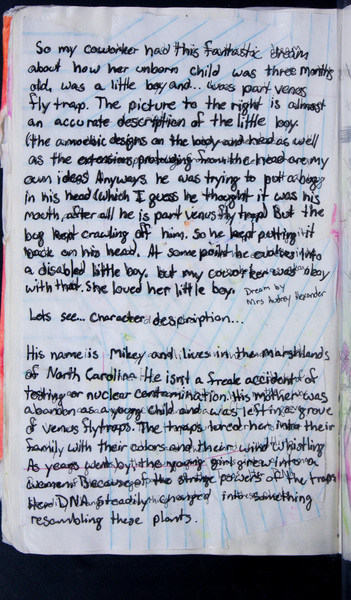 So my coworker had this fantastic dream
about how her unborn child was three months
old, was a little boy and... was part venus
fly trap. The picture to the right is almost
an accurate description of the little boy.
(the amoebic designs on the body and head as well
as the extensions protruding from the head are my
own ideas) Anyways he was trying to put a bug
in his head (which I guess he thought it was his
mouth, after all he is part venus fly trap) But the
bug kept crawling off him. So he kept putting it
back on his head. At some point he evolves into
a disabled little boy. but my coworker was okay
with that. She loved her little boy. Dream by
Mrs Audrey Alexander
Lets see... Character description...
His name is Mikey and lives in the marshlands
of North Carolina. He isnt a freak accident of
testing or nuclear contamination. His mother was
abandon as a young child and was left in a grove
of venus flytraps. The traps lured her into their
family with their colors and their wind whistling
As years went by the young girl grew into a
women. Because of the strange powers of the traps
Her DNA steadily changed into something
resembling these plants.